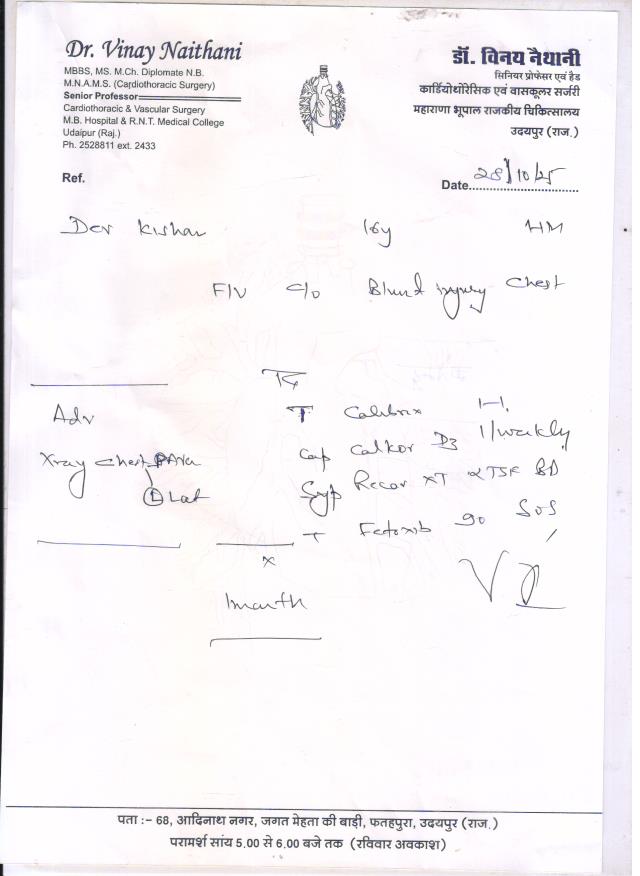 Dr. Vinay Naithani
MBBS, MS. M.Ch. Diplomate N.B.
M.N.A.M.S. (Cardiothoracic Surgery)
Senior Professor
Cardiothoracic & Vascular Surgery
M.B. Hospital & R.N.T. Medical College
Udaipur (Raj.)
Ph. 2528811 ext. 2433
डॉ. विनय नैथानी
सिनियर प्रोफेसर एवं हैड
कार्डियोथोरेसिक एवं वासकूलर सर्जरी
महाराणा भूपाल राजकीय चिकित्सालय
उदयपुर (राज.)
Ref.
Date 28/10/25
Dev Kishan 16y HM
F/U c/o Blunt injury Chest
Adv
Xray Chest
L Lat
T 1-1
Cap Calkor D3 1/weekly
Syp XT 2TSF BD
T 90 SOS
x
1 month
पता :- 68, आदिनाथ नगर, जगत मेहता की बाड़ी, फतहपुरा, उदयपुर (राज.)
परामर्श सांय 5.00 से 6.00 बजे तक (रविवार अवकाश)